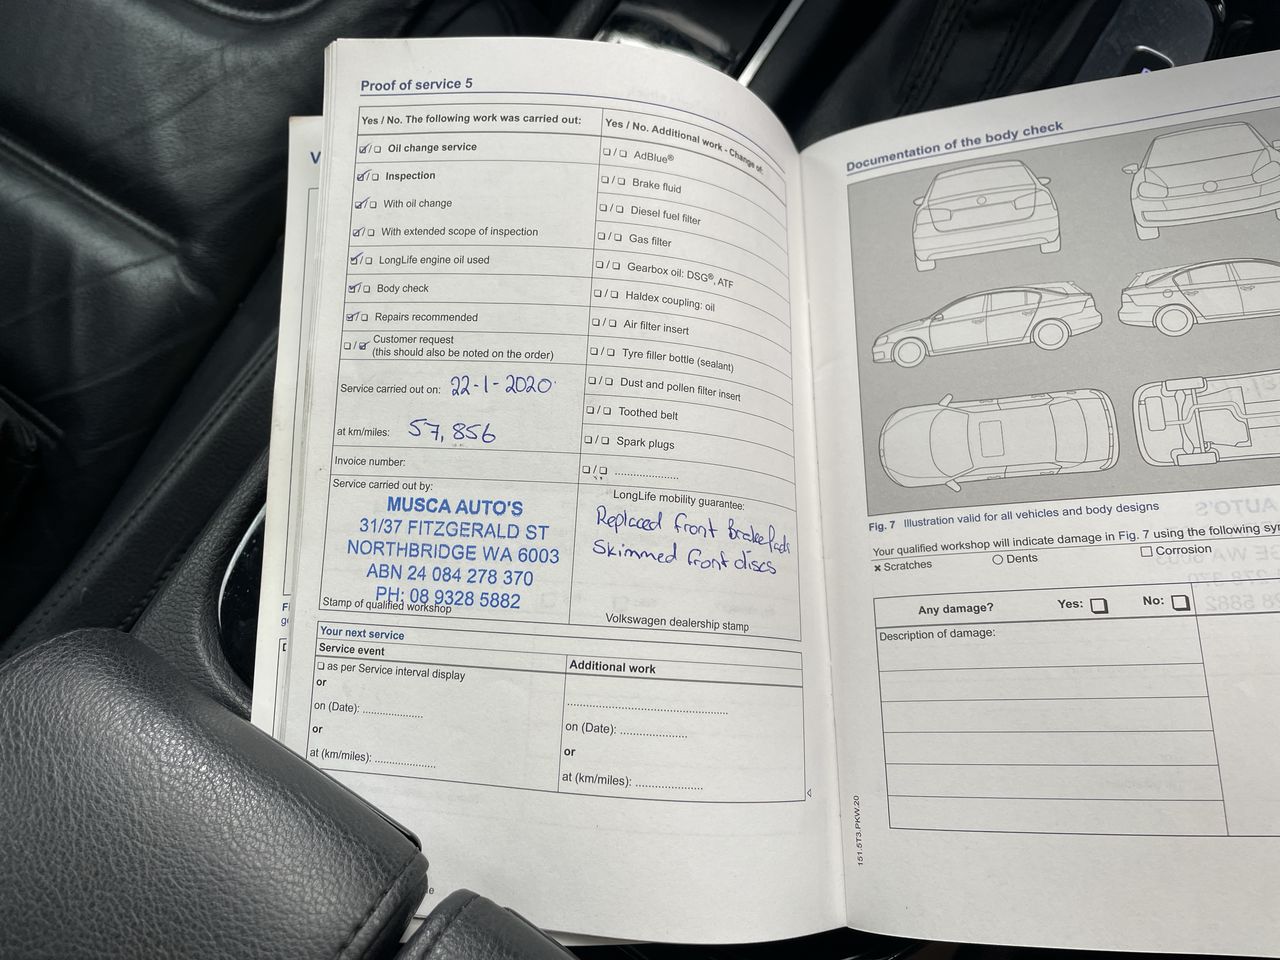 Proof of service 5
Yes / No. The following work was carried out:
☑/☐ Oil change service
☑/☐ Inspection
☑/☐ With oil change
☑/☐ With extended scope of inspection
☑/☐ LongLife engine oil used
☑/☐ Body check
☑/☐ Repairs recommended
☐/☑ Customer request
(this should also be noted on the order)
Service carried out on: 22-1-2020
at km/miles: 57,856
Invoice number:
Service carried out by:
MUSCA AUTO'S
31/37 FITZGERALD ST
NORTHBRIDGE WA 6003
ABN 24 084 278 370
PH: 08 9328 5882
Stamp of qualified workshop
Yes / No. Additional work - Change of:
☐/☐ AdBlue®
☐/☐ Brake fluid
☐/☐ Diesel fuel filter
☐/☐ Gas filter
☐/☐ Gearbox oil: DSG®, ATF
☐/☐ Haldex coupling: oil
☐/☐ Air filter insert
☐/☐ Tyre filler bottle (sealant)
☐/☐ Dust and pollen filter insert
☐/☐ Toothed belt
☐/☐ Spark plugs
☐/☐ ....................
LongLife mobility guarantee:
Replaced front Brake Pads
Skimmed front discs
Volkswagen dealership stamp
Your next service
Service event
☐ as per Service interval display
or
on (Date): ....................
or
at (km/miles): ....................
Additional work
..................................................
on (Date): ....................
or
at (km/miles): ....................
Documentation of the body check
Fig. 7 Illustration valid for all vehicles and body designs
Your qualified workshop will indicate damage in Fig. 7 using the following
x Scratches ○ Dents ☐ Corrosion
Any damage? Yes: ☐ No: ☐
Description of damage:
151.5T3.PKW.20